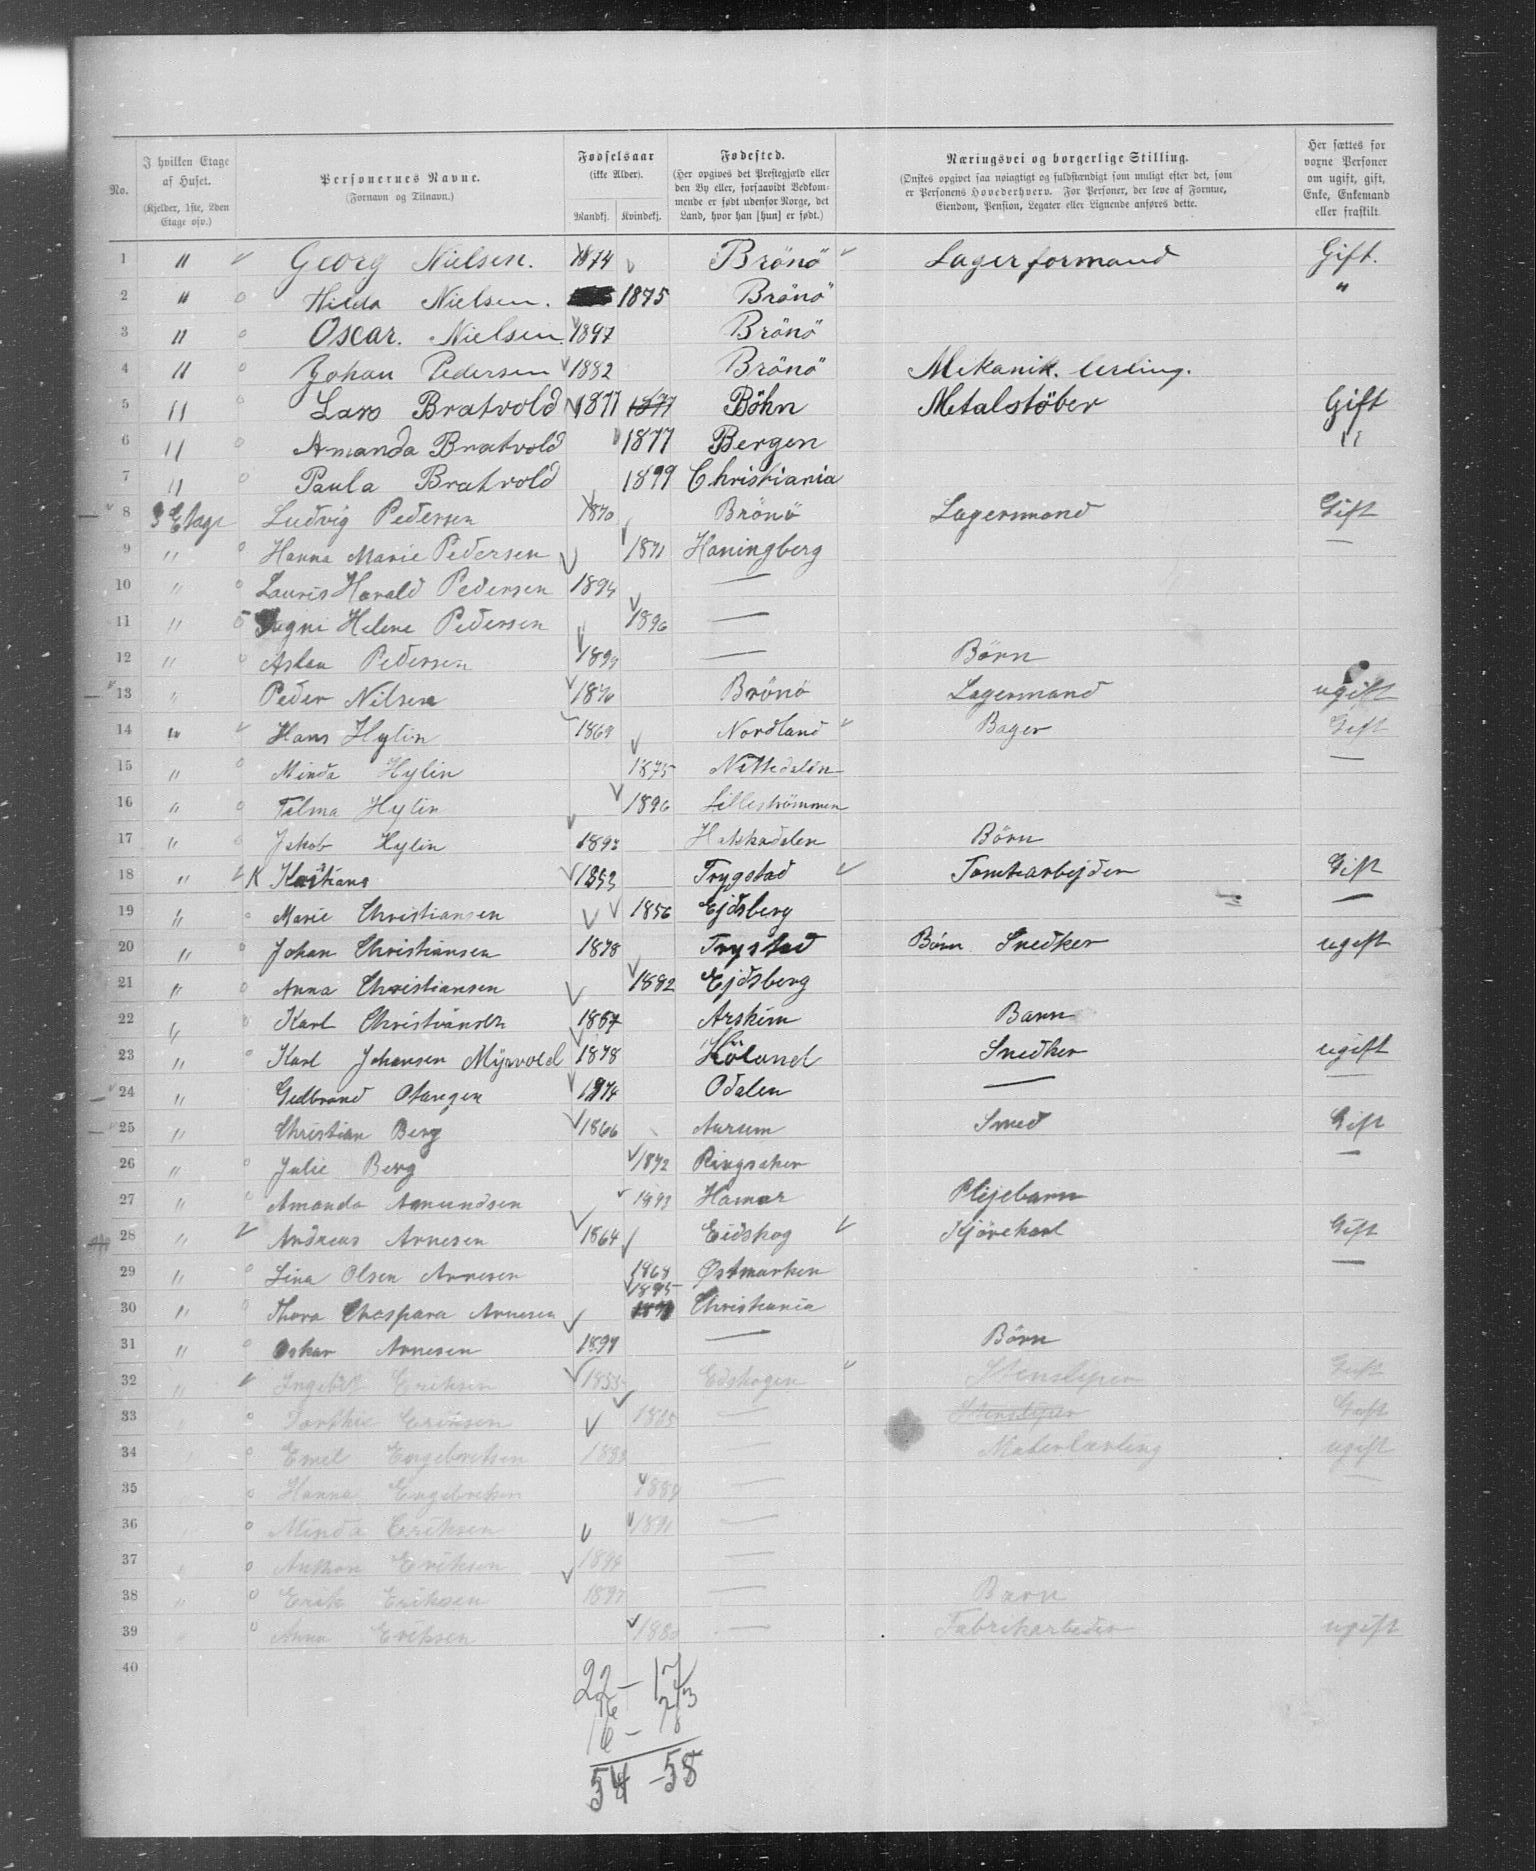 No.
I hvilken Etage af Huset.
(Kjelder, 1ste, 2den Etage osv.)
Personernes Navne.
(Fornavn og Tilnavn.)
Fødselsaar
(ikke Alder).
Mandkj. Kvindekj.
Fødested.
(Her opgives det Prestegjæld eller den By eller, forsaavidt Vedkommende er født udenfor Norge, det Land, hvor han [hun] er født.)
Næringsvei og borgerlige Stilling.
(Ønskes opgivet saa nøiagtigt og fuldstændigt som muligt efter det, som er Personens Hovederhverv. For Personer, der leve af Formue, Eiendom, Pension, Legater eller Lignende anføres dette.
Her sættes for voxne Personer om ugift, gift, Enke, Enkemand eller fraskilt.
1 " Georg Nielsen. 1874 Brönö Lagerformand Gift.
2 " Hilda Nielsen. 1875 Brönö "
3 " Oscar. Nielsen. 1897 Brönö
4 " Johan Pedersen 1882 Brönö Mekanik. lerling.
5 " Lars Bratvold 1877 1877 Böhn Metalstöber Gift
6 " Amanda Bratvold 1877 Bergen "
7 " Paula Bratvold 1899 Christiania
8 3 Etage Ludvig Pedersen 1870 Brönö Lagermand Gift
9 " Hanna Marie Pedersen 1871 Haningberg —
10 " Lauris Harald Pedersen 1894 —
11 " Helene Pedersen 1896 —
12 " Pedersen 1899 — Börn
13 " Peder Nilsen 1876 Brönö Lagermand ugift
14 " Hans Hylin 1869 Nordland Bager Gift
15 " Minda Hylin 1875 Nittedalen —
16 " Talma Hylin 1896 Lilleströmmen
17 " Jakob Hylin Börn
18 " K Kristians 1853 Trygstad Tomtearbejder Gift
19 " Marie Christiansen 1856 Ejdsberg —
20 " Johan Christiansen 1878 Trystad Börn Snedker ugift
21 " Anna Christiansen 1882 Ejdsberg
22 " Karl Christiansen Askim Barn
23 " Karl Johansen Myrvold 1878 Höland Snedker ugift
24 " Gulbrand 1874 Odalen — —
25 " Christian Berg 1866 Aurum Smed Gift
26 " Julie Berg 1872 Ringsaker —
27 " Amanda Amundsen Hamar Plejebarn
28 " Andreas Arnesen 1864 Eidskog Kjörekarl Gift
29 " Lina Olsen Arnesen 1868 Østmarken —
30 " Thora Arnesen 1895 Christiania
31 " Oskar Arnesen 1897 — Börn
32 " Eriksen 1855 Edskogen Gift
33 " Eriksen 1865 — Gift
34 " Emil Engebretsen — Malerlærling ugift
35 Hanna Engebretsen — —
36 Minda Eriksen 1891 —
37 " Eriksen —
38 " Erik Eriksen 1897 — Barn
39 " Anna Eriksen — Fabrikarbeder ugift
40
22 — 17
16 —
54 — 58